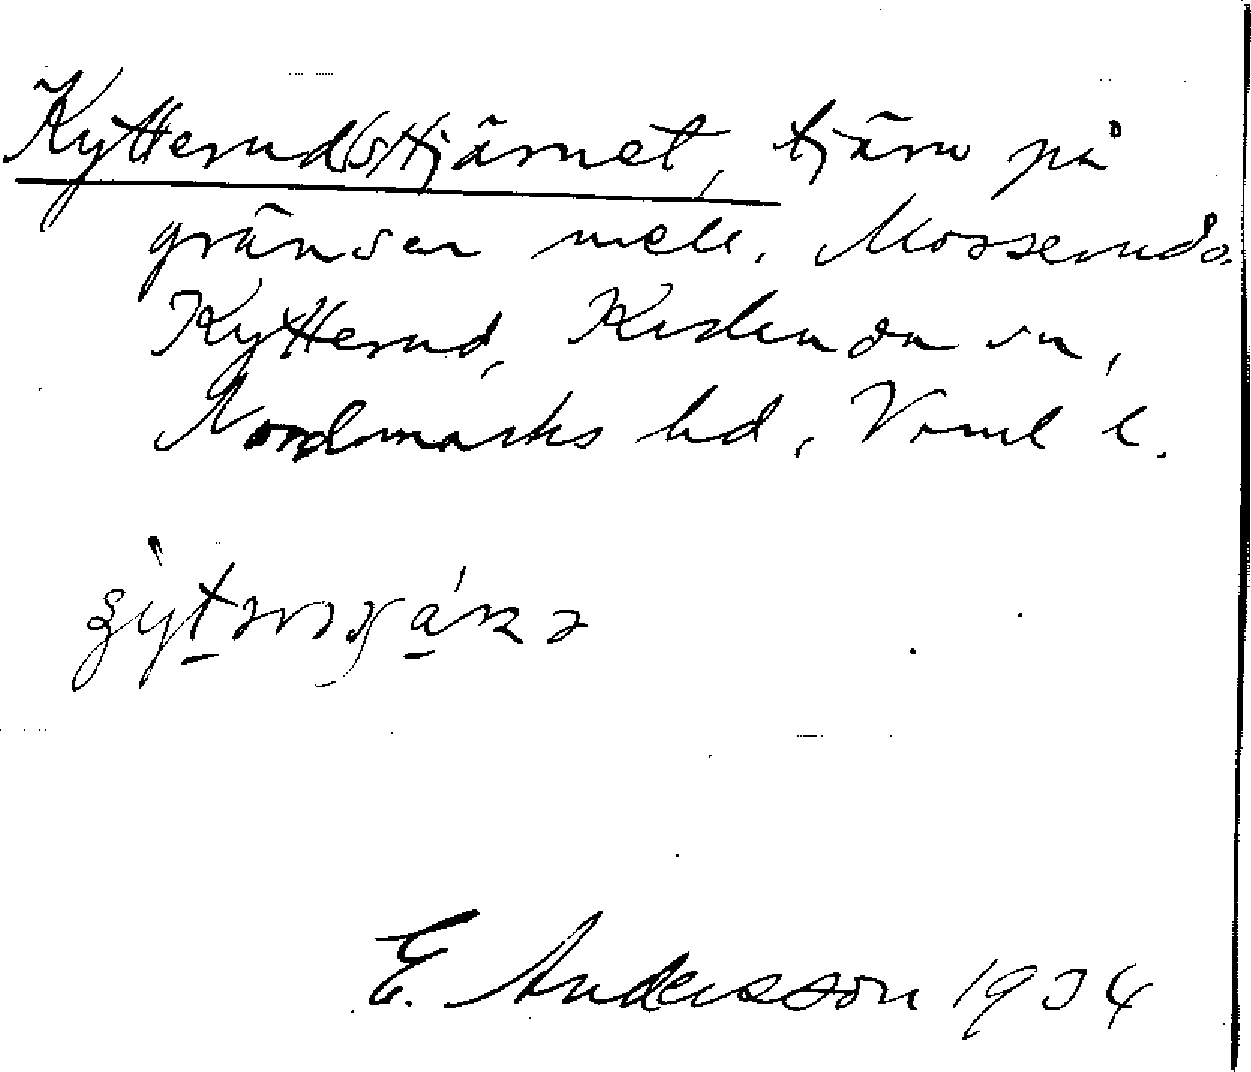 Kytterud(s)tjärnet, tjärn på
gränsen mell. Mosserud o.
Kytterud, Karlanda sn,
Nordmarks hd, Vrml l.
E. Andersson 1934